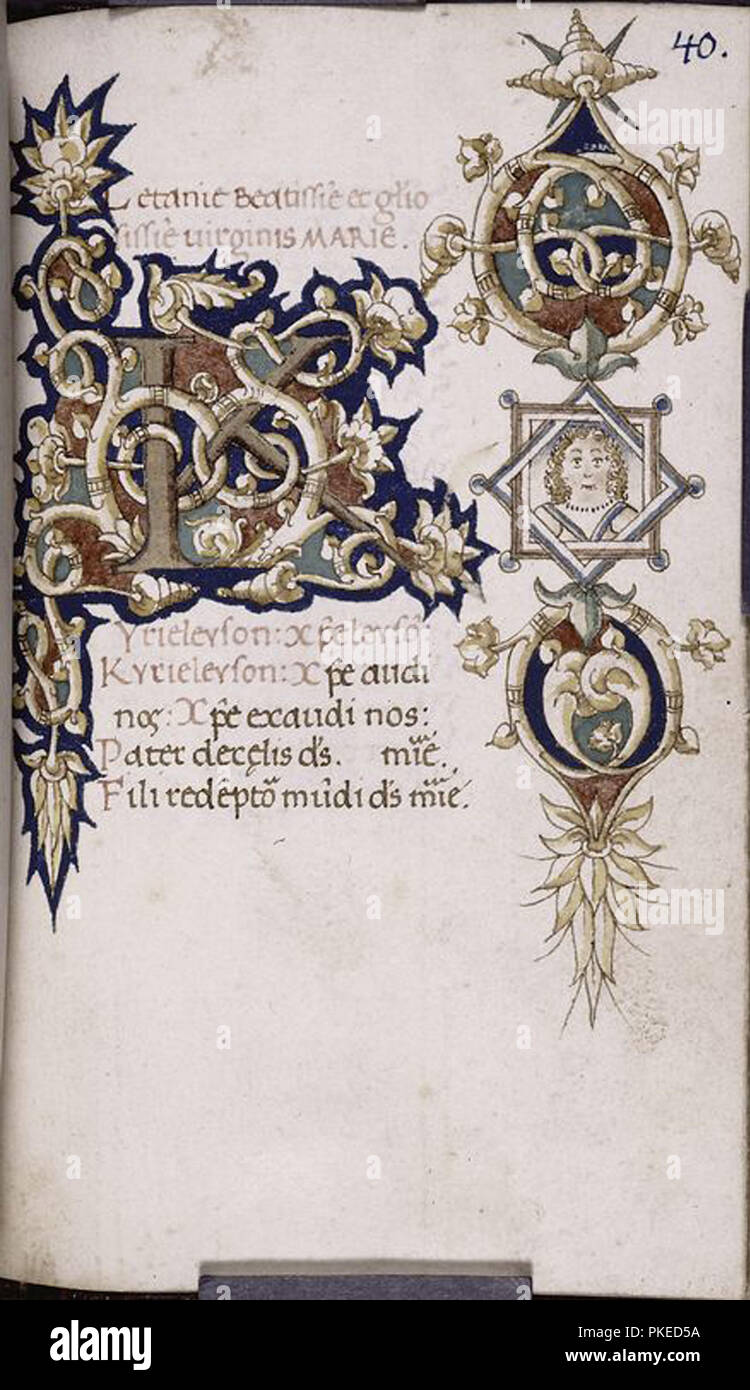 40.
Letanie Beatissiē et glīo
sissiē uirginis MARIE.
K
yrieleyson: xp̄eleysō:
Kyrieleyson: Xp̄e audi
nos: Xp̄e exaudi nos:
Pater decęlis ds̄. mīē.
Fili redēptō mūdi ds̄ mīē.
alamy
alamy
alamy
Image ID: PKED5A
www.alamy.com